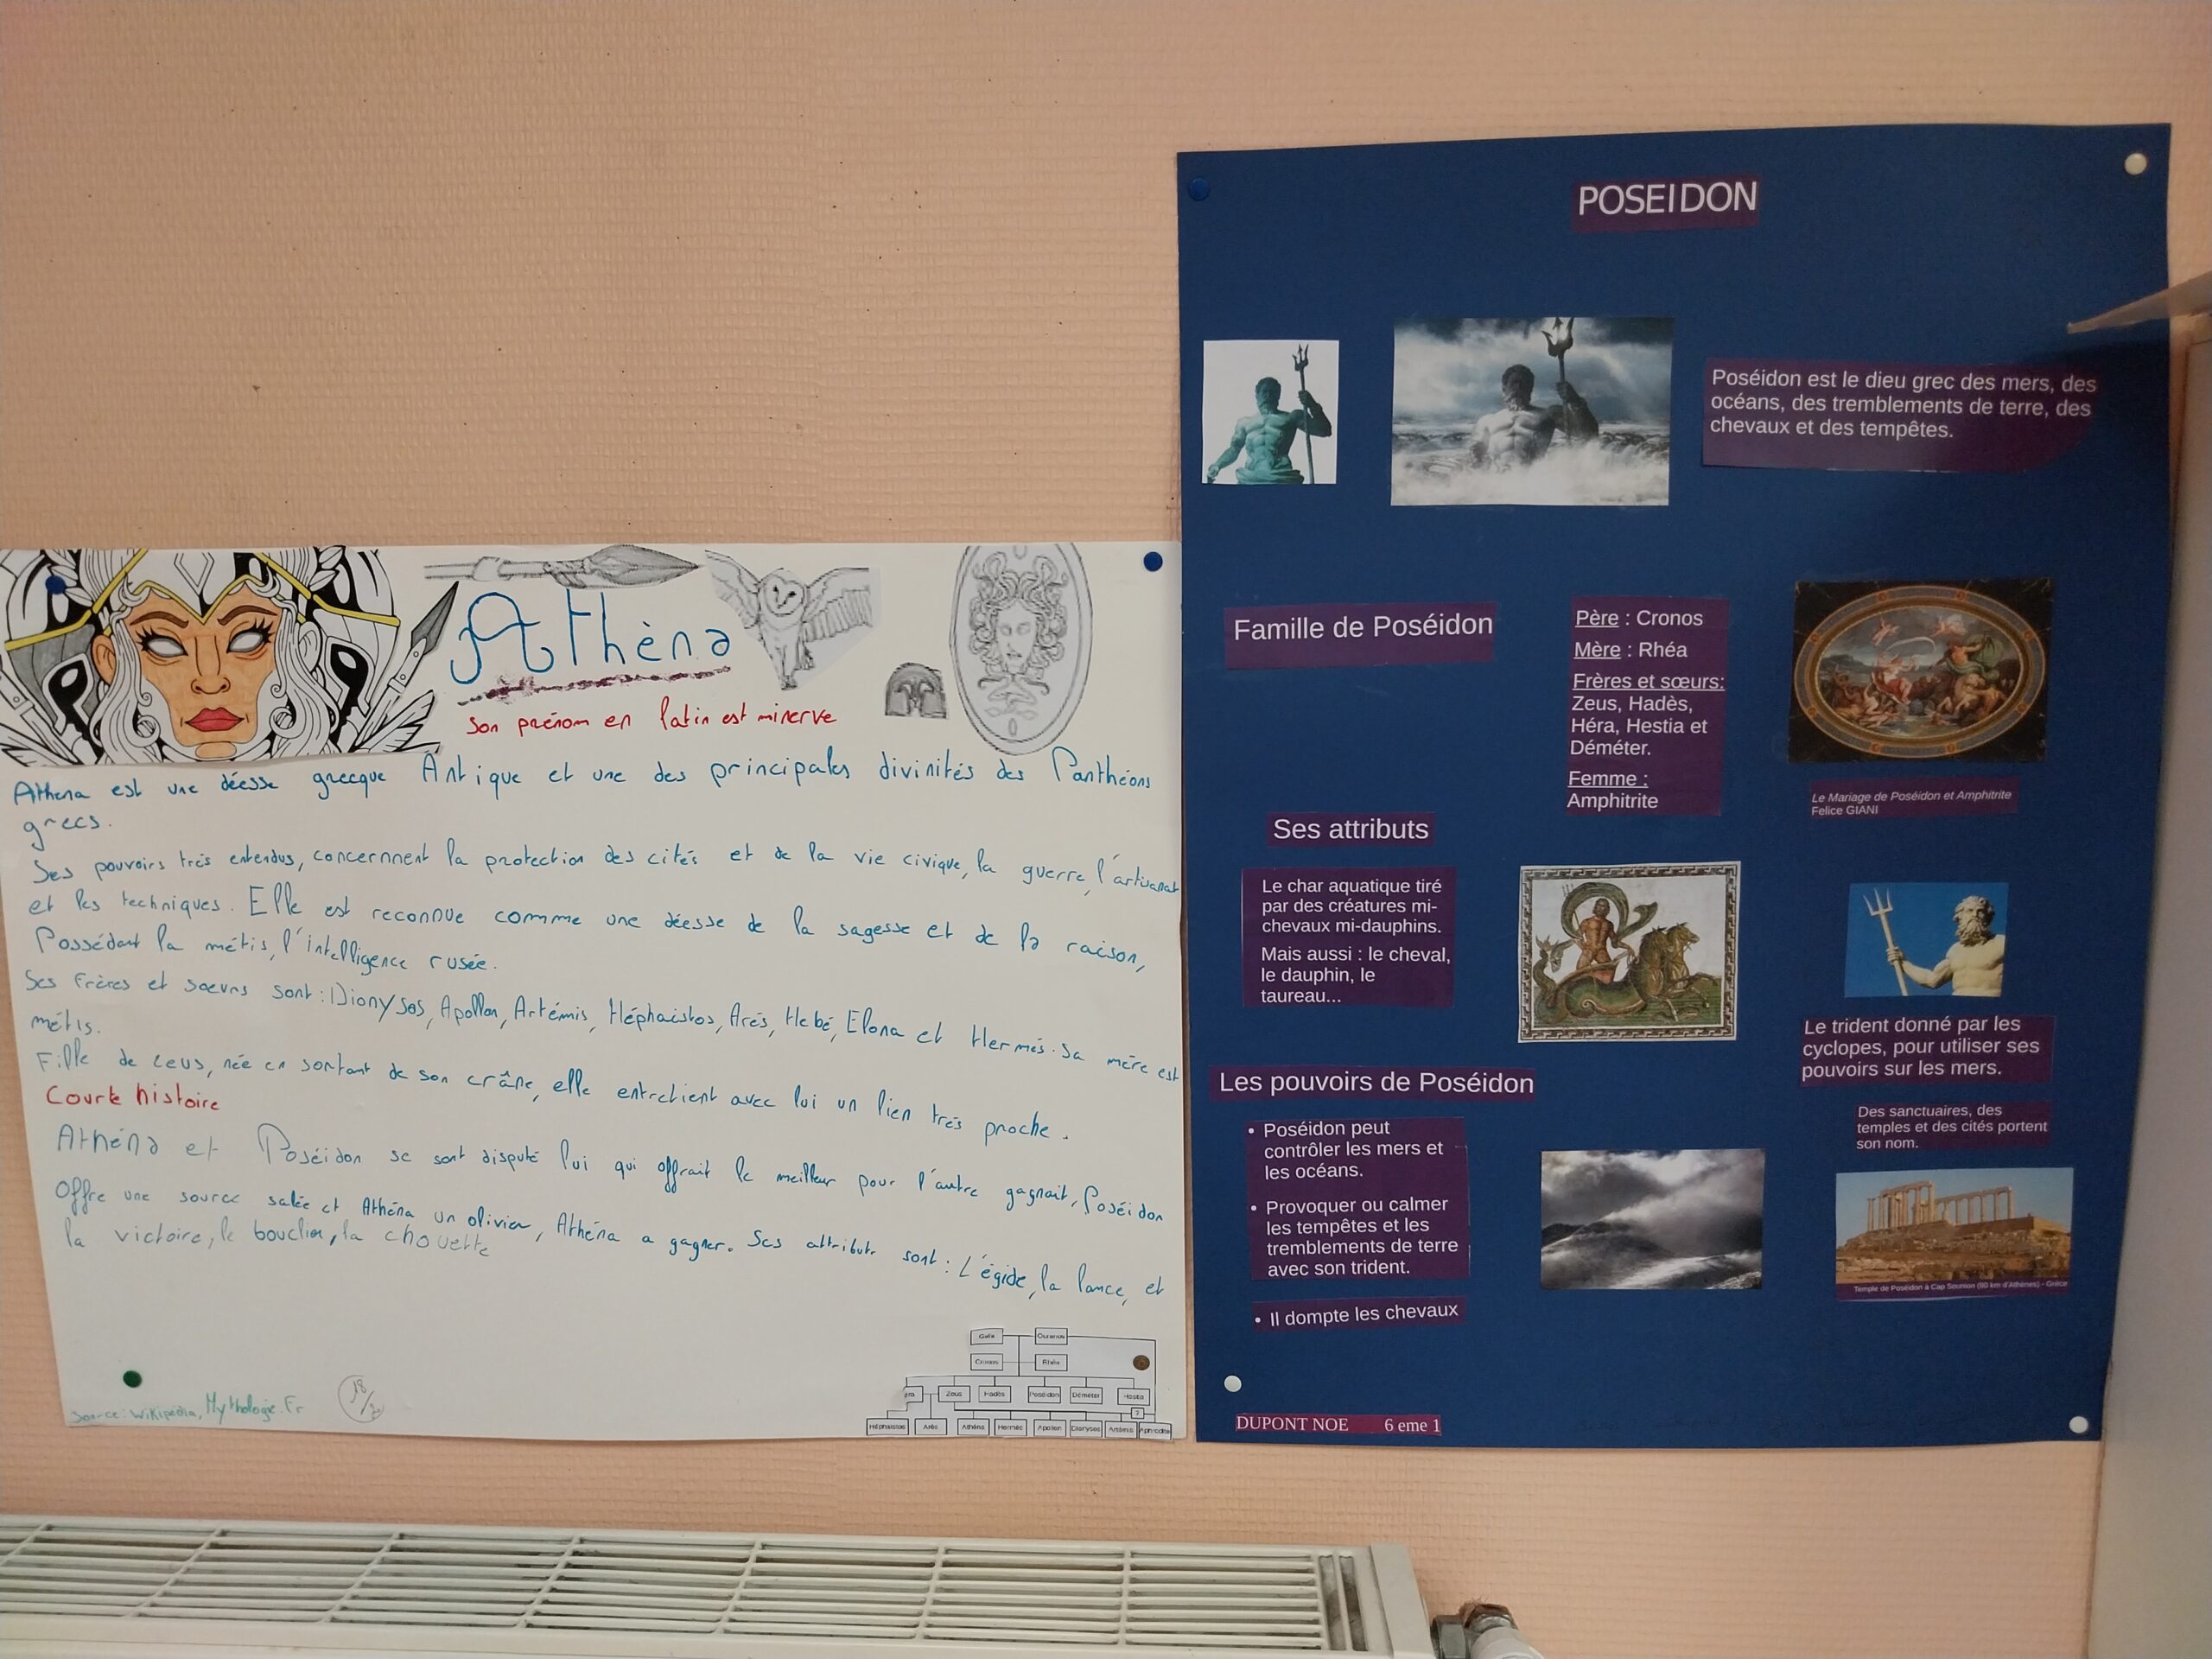 Athèna
Son prénom en latin est minerve
Athena est une déesse grecque Antique et une des principales divinités des Panthéons
grecs.
Ses pouvoirs très entendus, concernnent la protection des cités et de la vie civique, la guerre, l'artisanat
et les techniques. Elle est reconnue comme une déesse de la sagesse et de la raison,
Possédant la métis, l'intelligence rusée.
Ses Frères et sœurs sont : Dionysos, Apollon, Artémis, Héphaistos, Arés, Hebé, Elona et Hermés. Sa mère est
métis.
Fille de Zeus, née en sortant de son crâne, elle entretient avec lui un lien très proche.
Courte histoire
Athéna et Poséidon se sont disputé lui qui offrait le meilleur pour l'autre gagnait, Poséidon
Offre une source salée et Athéna un olivier, Athéna a gagner. Ses attributs sont : L'égide, la lance, et
la victoire, le bouclier, la chouette
Source : Wikipédia, Mythologie.Fr
18/20
Gaïa Ouranos
Cronos Rhéa
Zeus Hadès Poséidon Déméter Hestia
?
Héphaïstos Arès Athéna Hermès Apollon Dionysos Artémis Aphrodite
POSEIDON
Poséidon est le dieu grec des mers, des
océans, des tremblements de terre, des
chevaux et des tempêtes.
Famille de Poséidon
Père : Cronos
Mère : Rhéa
Frères et sœurs:
Zeus, Hadès,
Héra, Hestia et
Déméter.
Femme :
Amphitrite
Le Mariage de Poséidon et Amphitrite
Felice GIANI
Ses attributs
Le char aquatique tiré
par des créatures mi-
chevaux mi-dauphins.
Mais aussi : le cheval,
le dauphin, le
taureau...
Le trident donné par les
cyclopes, pour utiliser ses
pouvoirs sur les mers.
Les pouvoirs de Poséidon
• Poséidon peut
contrôler les mers et
les océans.
• Provoquer ou calmer
les tempêtes et les
tremblements de terre
avec son trident.
• Il dompte les chevaux
Des sanctuaires, des
temples et des cités portent
son nom.
Temple de Poséidon à Cap Sounion (60 km d'Athènes) - Grèce
DUPONT NOE 6 eme 1